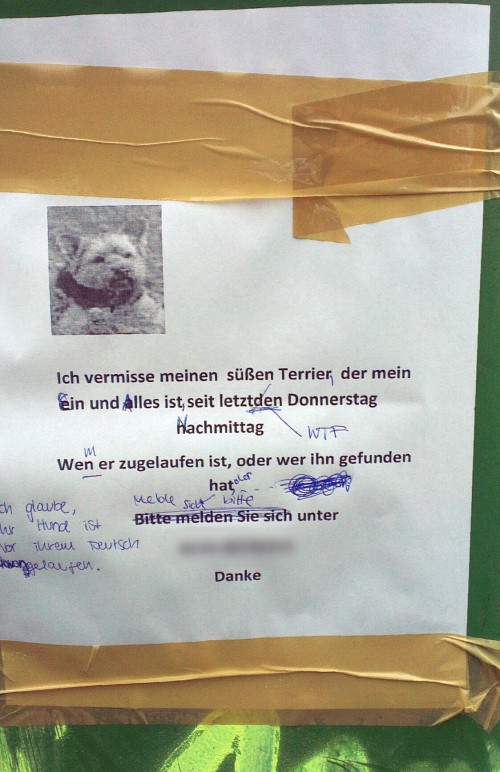 Ich vermisse meinen süßen Terrier, der mein
Ein und Alles ist, seit letztden Donnerstag
Nachmittag
WTF
m
Wen er zugelaufen ist, oder wer ihn gefunden
hat, der
melde sich bitte
Bitte melden Sie sich unter
ch glaube,
hr Hund ist
vor ihrem Deutsch
gelaufen.
Danke